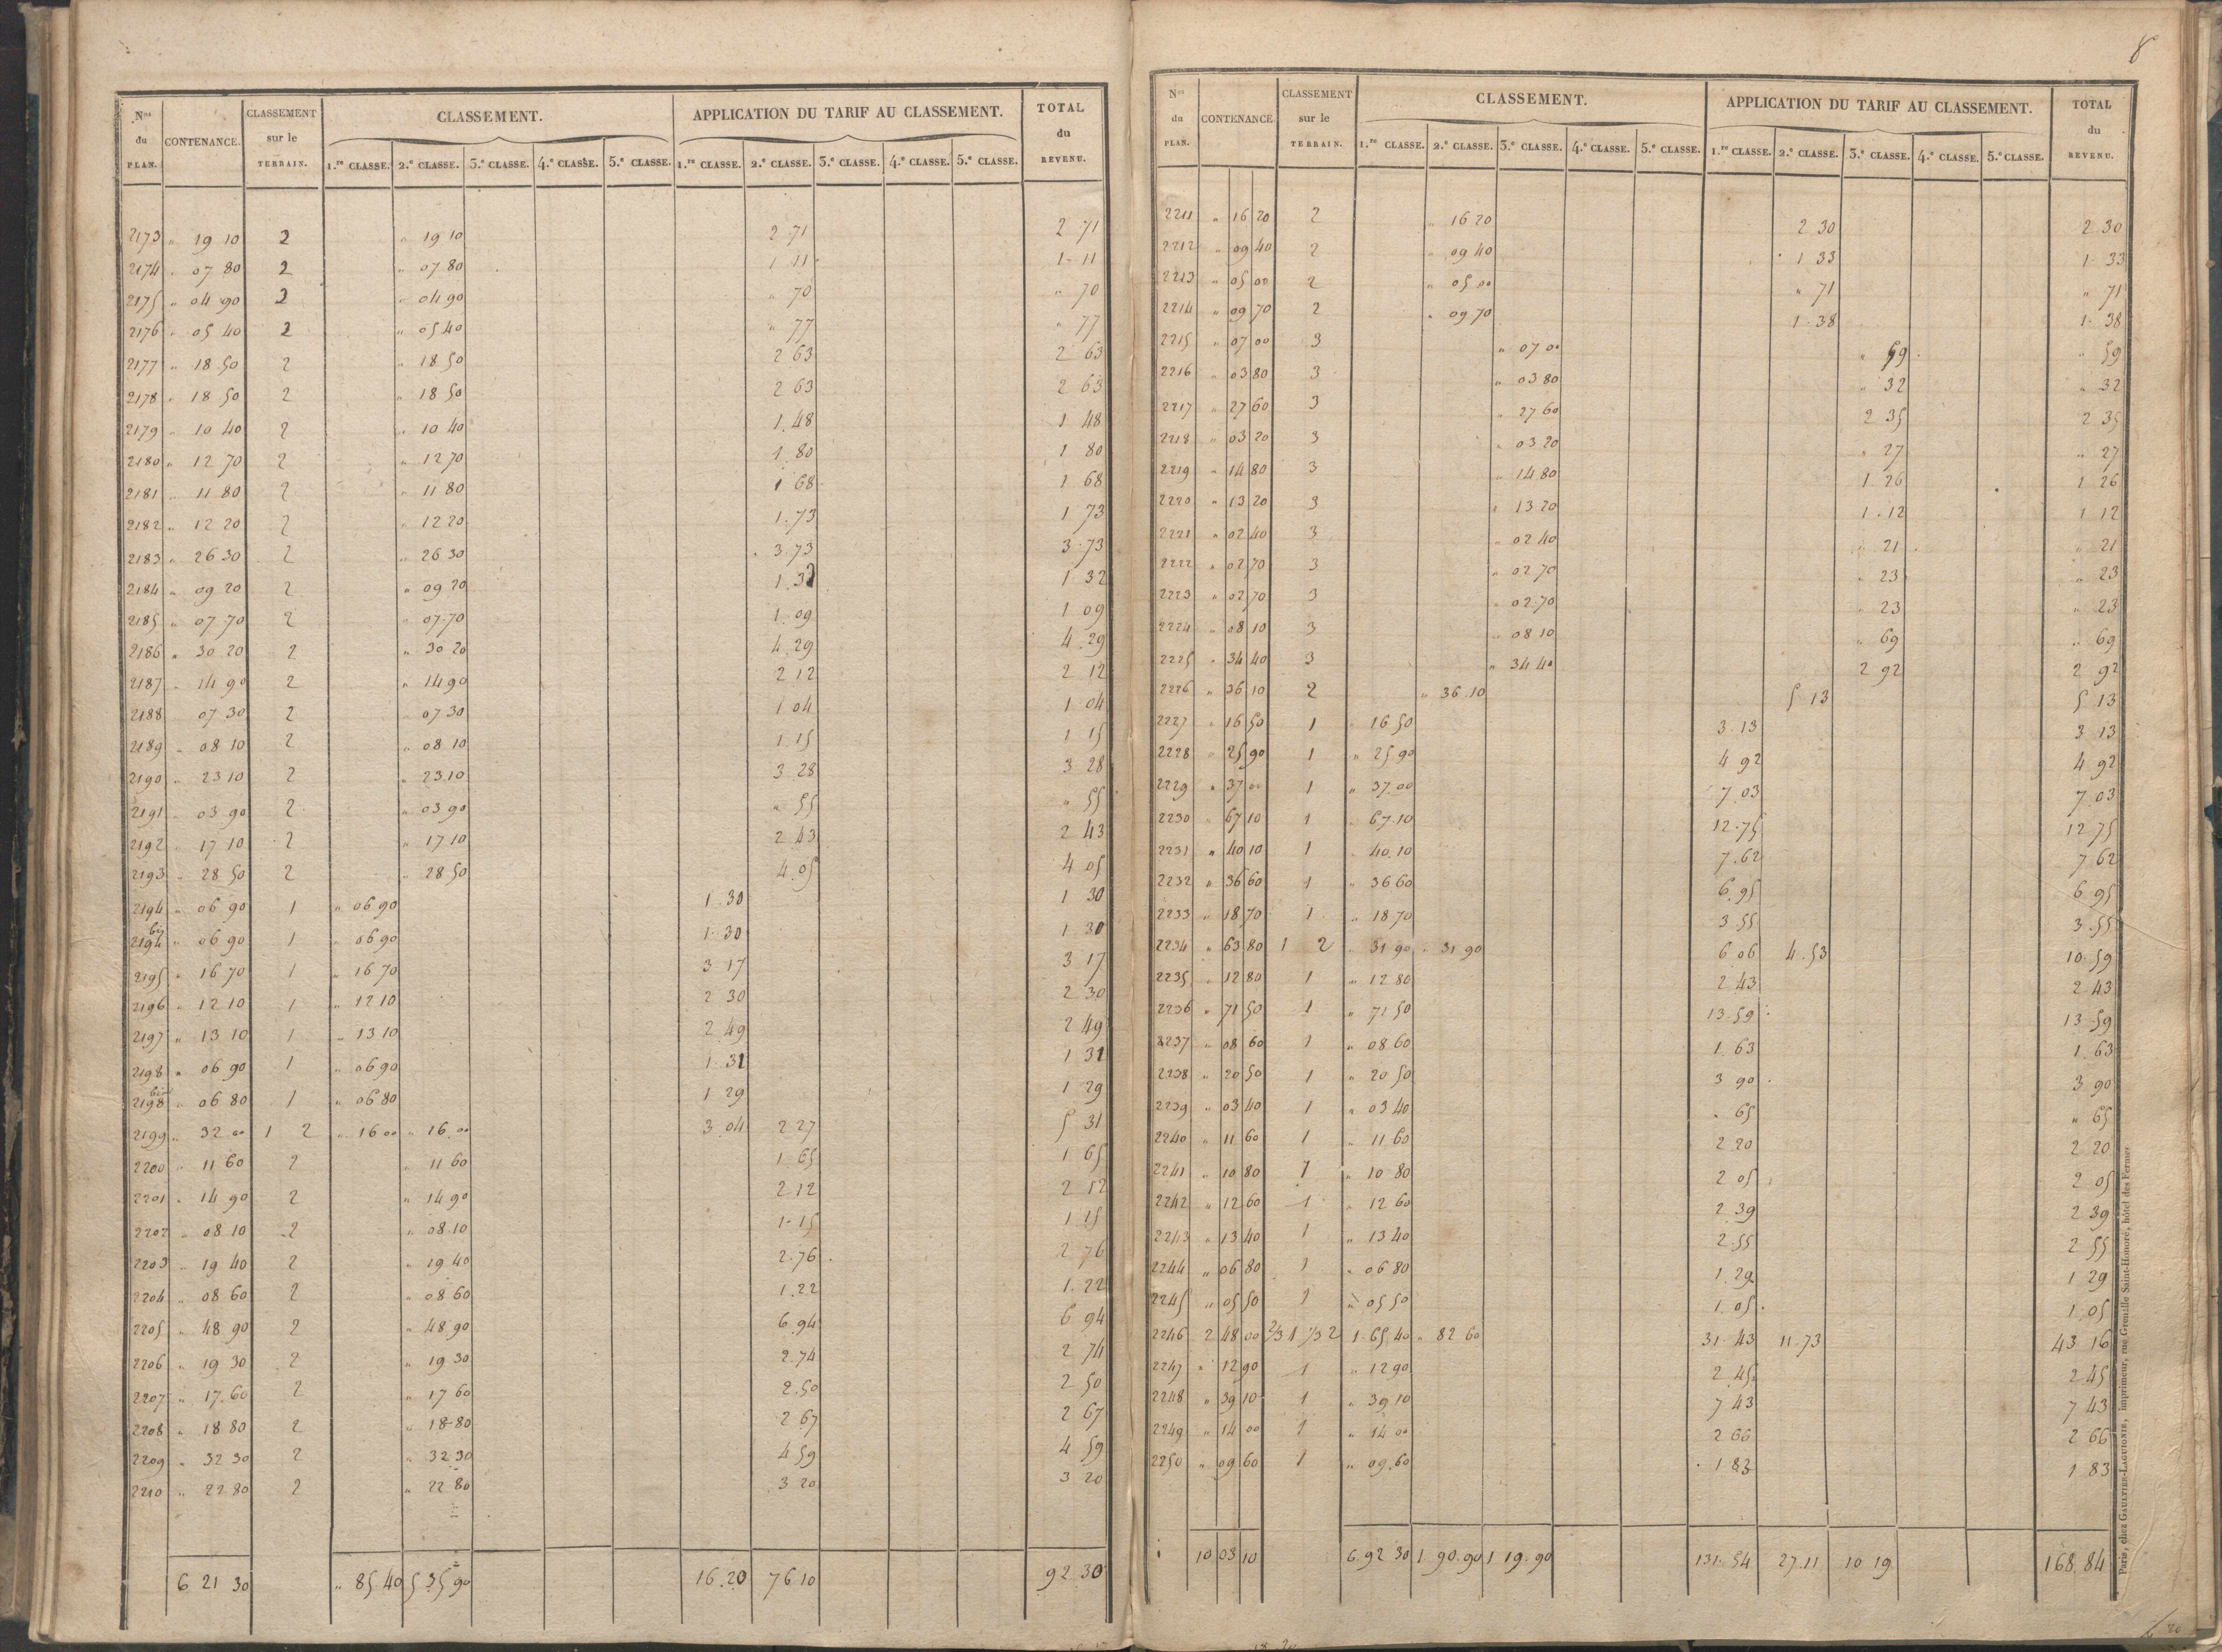 8
N.os du PLAN. CONTENANCE. CLASSEMENT sur le TERRAIN. CLASSEMENT. APPLICATION DU TARIF AU CLASSEMENT. TOTAL du REVENU.
1.re CLASSE. 2.e CLASSE. 3.e CLASSE. 4.e CLASSE. 5.e CLASSE. 1.re CLASSE. 2.e CLASSE. 3.e CLASSE. 4.e CLASSE. 5.e CLASSE.
2173 " 19 10 2 " 19 10 2 71 2 71
2174 " 07 80 2 " 07 80 1 11 1 11
2175 " 04 90 2 " 04 90 " 70 " 70
2176 " 05 40 2 " 05 40 " 77 " 77
2177 " 18 50 2 " 18 50 2 63 2 63
2178 " 18 50 2 " 18 50 2 63 2 63
2179 " 10 40 2 " 10 40 1.48 1 48
2180 " 12 70 2 " 12 70 1 80 1 80
2181 " 11 80 2 " 11 80 1 68 1 68
2182 " 12 20 2 " 12 20 1.73 1 73
2183 " 26 30 2 " 26 30 3.73 3.73
2184 " 09 20 2 " 09 20 1.32 1 32
2185 " 07 70 2 " 07.70 1.09 1 09
2186 " 30 20 2 " 30 20 4.29 4.29
2187 " 14 90 2 " 14 90 2 12 2 12
2188 07 30 2 " 07 30 1 04 1 04
2189 " 08 10 2 " 08 10 1.15 1 15
2190 " 23 10 2 " 23.10 3 28 3 28
2191 " 03 90 2 " 03 90 " 55 " 55
2192 " 17 10 2 " 17 10 2 43 2 43
2193 " 28 50 2 " 28 50 4.05 4 05
2194 " 06 90 1 " 06 90 1.30 1 30
2194 bis " 06 90 1 " 06 90 1.30 1 30
2195 " 16 70 1 " 16 70 3 17 3 17
2196 " 12 10 1 " 12 10 2 30 2 30
2197 " 13 10 1 " 13 10 2 49 2 49
2198 " 06 90 1 " 06 90 1.31 1 31
2198 bis " 06 80 1 " 06 80 1 29 1 29
2199 " 32 00 1 2 " 16 00 " 16.00 3.04 2 27 5 31
2200 " 11 60 2 " 11 60 1 65 1 65
2201 " 14 90 2 " 14 90 2 12 2 12
2202 " 08 10 2 " 08.10 1.15 1 15
2203 " 19 40 2 " 19 40 2.76 2 76
2204 " 08 60 2 " 08 60 1.22 1.22
2205 " 48 90 2 " 48.90 6.94 6 94
2206 " 19 30 2 " 19.30 2.74 2 74
2207 " 17.60 2 " 17 60 2.50 2 50
2208 " 18 80 2 " 18 80 2 67 2 67
2209 " 32 30 2 " 32 30 4 59 4 59
2210 " 22 80 2 " 22 80 3 20 3 20
6 21 30 " 85 40 5 35 90 16.20 76 10 92 30
N.os du PLAN. CONTENANCE. CLASSEMENT sur le TERRAIN. CLASSEMENT. APPLICATION DU TARIF AU CLASSEMENT. TOTAL du REVENU.
1.re CLASSE. 2.e CLASSE. 3.e CLASSE. 4.e CLASSE. 5.e CLASSE. 1.re CLASSE. 2.e CLASSE. 3.e CLASSE. 4.e CLASSE. 5.e CLASSE.
2211 " 16 20 2 " 16 20 2 30 2 30
2212 " 09 40 2 " 09 40 1 33 1 33
2213 " 05 00 2 " 05 00 " 71 " 71
2214 " 09 70 2 " 09 70 1.38 1.38
2215 " 07 00 3 " 07 00 " 59 " 59
2216 " 03 80 3 " 03 80 " 32 " 32
2217 " 27 60 3 " 27 60 2 35 2 35
2218 " 03 20 3 " 03 20 " 27 " 27
2219 " 14 80 3 " 14 80 1.26 1 26
2220 " 13 20 3 " 13 20 1.12 1 12
2221 " 02 40 3 " 02 40 " 21 " 21
2222 " 02 70 3 " 02 70 " 23 " 23
2223 " 02 70 3 " 02.70 " 23 " 23
2224 " 08 10 3 " 08 10 " 69 " 69
2225 " 34 40 3 " 34 40 2 92 2 92
2226 " 36 10 2 " 36.10 5 13 5 13
2227 " 16 50 1 " 16 50 3.13 3 13
2228 " 25 90 1 " 25 90 4 92 4 92
2229 " 37 00 1 " 37.00 7.03 7 03
2230 " 67 10 1 " 67.10 12.75 12 75
2231 " 40 10 1 " 40.10 7.62 7 62
2232 " 36 60 1 " 36 60 6.95 6 95
2233 " 18 70 1 " 18 70 3.55 3.55
2234 " 63 80 1 2 " 31 90 " 31 90 6 06 4.53 10.59
2235 " 12 80 1 " 12 80 2 43 2 43
2236 " 71 50 1 " 71 50 13.59 13 59
2237 " 08 60 1 " 08 60 1.63 1.63
2238 " 20 50 1 " 20 50 3 90 3 90
2239 " 03 40 1 " 03 40 " 65 " 65
2240 " 11 60 1 " 11 60 2 20 2 20
2241 " 10 80 1 " 10 80 2 05 2 05
2242 " 12 60 1 " 12 60 2 39 2 39
2243 " 13 40 1 " 13 40 2.55 2 55
2244 " 06 80 1 " 06 80 1.29 1 29
2245 " 05 50 1 " 05 50 1.05 1.05
2246 2 48 00 2/3 1 1/3 2 1.65 40 " 82 60 31.43 11.73 43 16
2247 " 12 90 1 " 12 90 2 45 2 45
2248 " 39 10 1 " 39 10 7 43 7 43
2249 " 14 00 1 " 14 00 2 66 2 66
2250 " 09 60 1 " 09.60 1 83 1 83
10 03 10 6.92 30 1 90.90 1 19.90 131.54 27.11 10 19 168.84
Paris, chez GAULTIER-LAGUIONIE, imprimeur, rue Grenelle Saint-Honoré, hôtel des Fermes